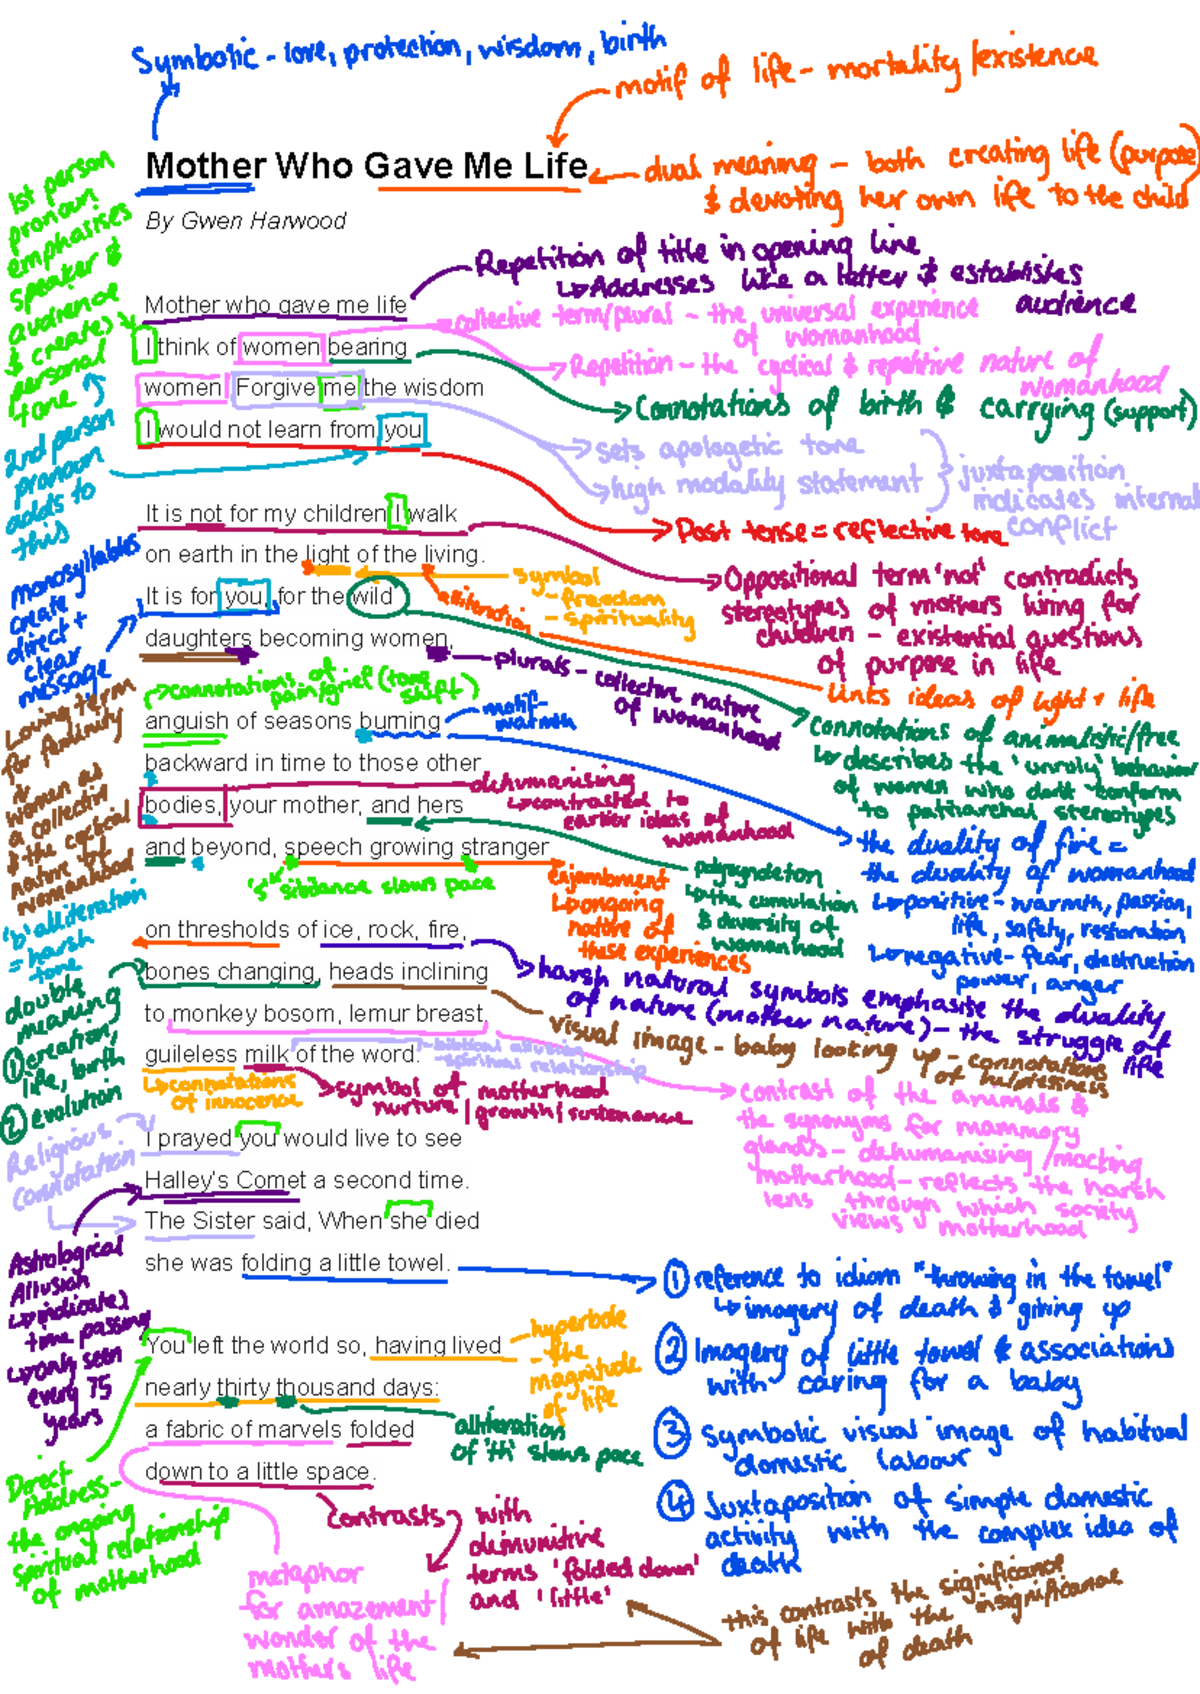 Symbolic - love, protection, wisdom, birth
motif of life - mortality/existence
Mother Who Gave Me Life
dual meaning - both creating life (purpose)
& devoting her own life to the child
By Gwen Harwood
1st person
pronoun
emphasises
speaker &
audience
& creates
personal
tone
Repetition of title in opening line
↳ Addresses like a letter & establishes
audience
Mother who gave me life
collective term/plural - the universal experience
of womanhood
I think of women bearing
Repetition - the cyclical & repetitive nature of
womanhood
women. Forgive me the wisdom
Connotations of birth & carrying (support)
I would not learn from you.
2nd person
pronoun
adds to
this
sets apologetic tone
high modality statement
juxtaposition
indicates internal
conflict
Past tense = reflective tone
It is not for my children I walk
on earth in the light of the living.
It is for you, for the wild
daughters becoming women,
monosyllables
create
direct +
clear
message
symbol
- freedom
- spirituality
alliteration
Oppositional term 'not' contradicts
stereotypes of mothers living for
children - existential questions
of purpose in life
links ideas of light + life
plurals - collective nature
of womanhood
connotations of
pain/grief (tone
shift)
motif-
warmth
connotations of animalistic/free
↳ describes the 'unruly' behaviour
of women who don't conform
to patriarchal stereotypes
Loving term
for femininity
+
women as
a collective
& the cyclical
nature of
womanhood
anguish of seasons burning
backward in time to those other
bodies, your mother, and hers
and beyond, speech growing stranger
dehumanising
↳ contrasted to
earlier ideas of
womanhood
the duality of fire =
the duality of womanhood
↳ positive - warmth, passion,
life, safety, restoration
↳ negative - fear, destruction
power, anger
's' sibilance slows pace
enjambment
↳ ongoing
nature of
these experiences
polysyndeton
↳ the cumulation
& diversity of
womanhood
'b' alliteration
= harsh
tone
on thresholds of ice, rock, fire,
bones changing, heads inclining
to monkey bosom, lemur breast,
guileless milk of the word.
harsh natural symbols emphasise the duality
of nature (mother nature) - the struggle of
life
double
meaning
① creation/
life, birth
② evolution
visual image - baby looking up - connotations
of helplessness
- biblical allusion
- spiritual relationship
↳ connotations
of innocence
symbol of motherhood
nurture/growth/sustenance
contrast of the animals &
the synonyms for mammary
glands - dehumanising/mocking
motherhood - reflects the harsh
lens through which society
views motherhood
I prayed you would live to see
Halley's Comet a second time.
The Sister said, When she died
she was folding a little towel.
Religious
connotation
Astrological
Allusion
↳ indicates
time passing
↳ only seen
every 75
years
① reference to idiom "throwing in the towel"
↳ imagery of death & giving up
② Imagery of little towel & associations
with caring for a baby
③ Symbolic visual image of habitual
domestic labour
④ Juxtaposition of simple domestic
activity with the complex idea of
death
You left the world so, having lived
nearly thirty thousand days:
a fabric of marvels folded
down to a little space.
hyperbole
- the
magnitude
of life
alliteration
of 'th' slows pace
Direct
Address -
the ongoing
spiritual relationship
of motherhood
contrasts with
diminutive
terms 'folded down'
and 'little'
metaphor
for amazement/
wonder of the
mothers life
this contrasts the significance
of life with the insignificance
of death